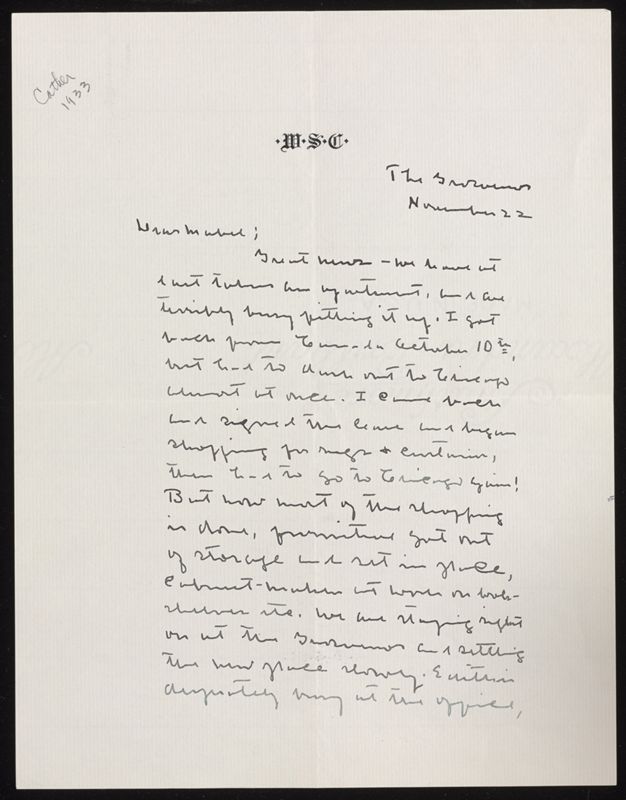 Cather
1933
·W·S·C·
The Grosvenor
November 22
Dear Mabel;
Great news - we have at
last taken an apartment, and are
terribly busy fitting it up. I got
back from Canada October 10th,
but had to dash out to Chicago
almost at once. I came back
and signed the lease and began
shopping for rugs + curtains,
then had to go to Chicago again!
But now most of the shopping
is done, furniture got out
of storage and set in place,
Cabinet-makers at work on book-
shelves etc. We are staying right
on at the Grosvenor and settling
the new place slowly. Edith is
desperately busy at the office,